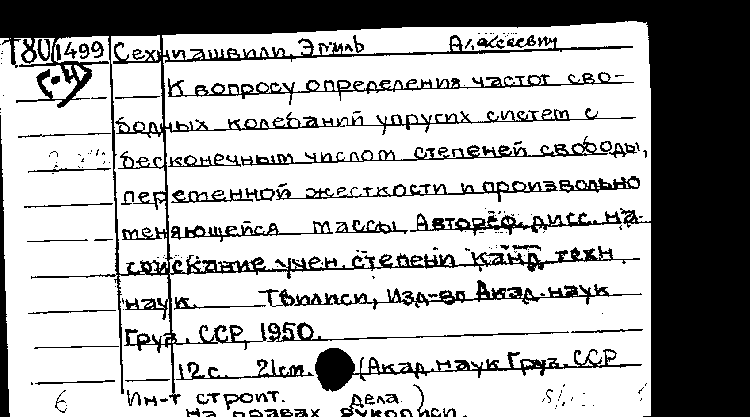 Т80/1499 Сехниашвили, Эмиль Алексеевич
К вопросу определения частот сво-
бодных колебаний упругих систем с
бесконечным числом степеней свободы,
переменной жесткости и произвольно
меняющейся массы. Автореф. дисс. на
соискание учен. степени канд. техн.
наук. Тбилиси, Изд-во Акад. наук
Груз. ССР, 1950.
12 с. 21 см. (Акад. наук Груз. ССР
6 Ин-т строит. дела.)
На правах рукописи.